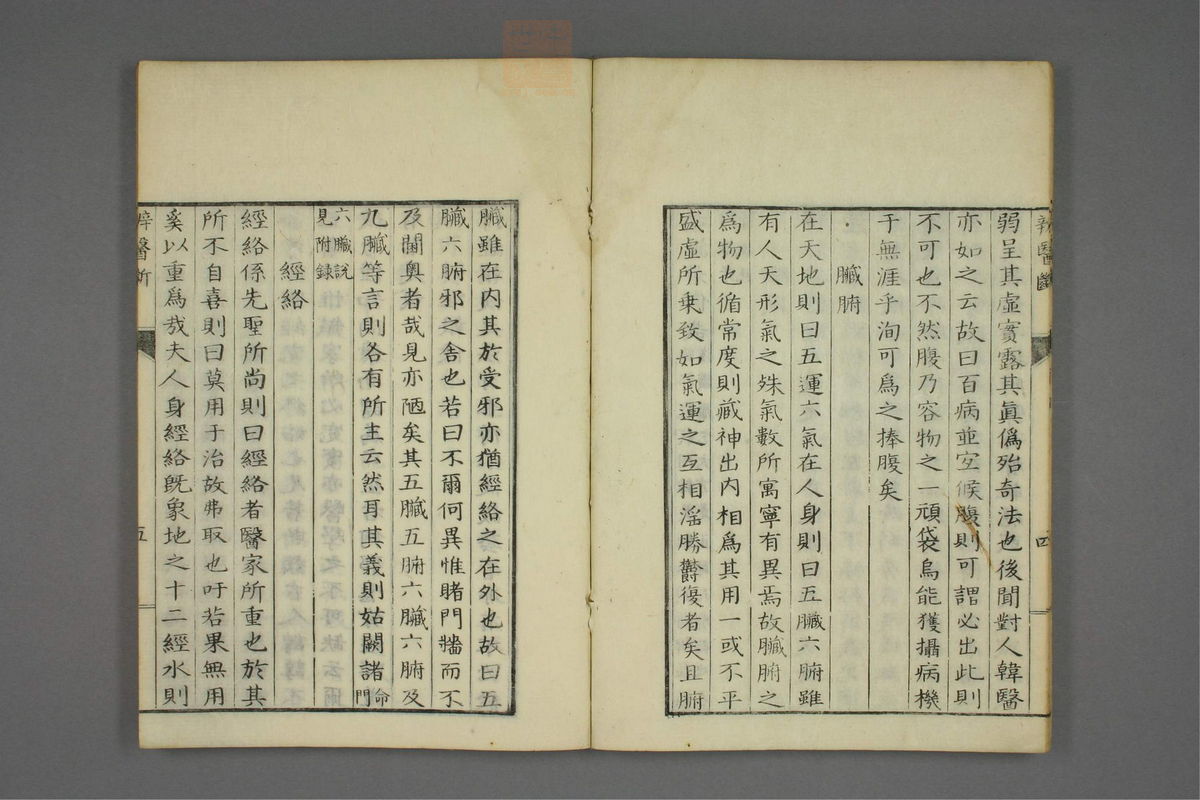 弱呈其虛實露其眞僞殆奇法也後聞對人韓醫
亦如之云故曰百病並宜候腹則可謂必出此則
不可也不然腹乃容物之一頑袋烏能獲攝病機
于無涯乎洵可爲之捧腹矣
臟腑
在天地則曰五運六氣在人身則曰五臟六腑雖
有人天形氣之殊氣數所寓寧有異焉故臟腑之
爲物也循常度則藏神出内相爲其用一或不平
盛虛所乗致如氣運之互相淫勝欝復者矣且腑
四
臟雖在内其於受邪亦猶經絡之在外也故曰五
臟六腑邪之舍也若曰不爾何異惟睹門牆而不
及閫奧者哉見亦陋矣其五臟五腑六臟六腑及
九臟等言則各有所主云然耳其義則姑闕諸命門
六臟說見附録
經絡
經絡係先聖所尚則曰經絡者醫家所重也於其
所不自喜則曰莫用于治故弗取也吁若果無用
奚以重爲哉夫人身經絡旣象地之十二經水則
醫斷
五